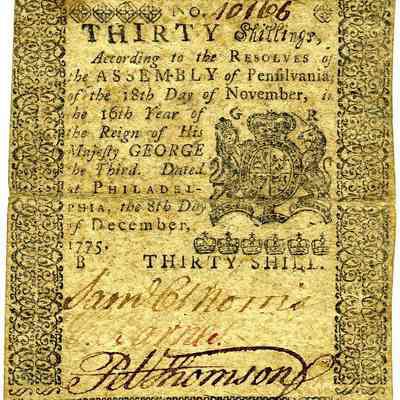 No. 10166
THIRTY Shillings,
According to the RESOLVES of
the ASSEMBLY of Pennsilvania,
of the 18th Day of November, in
the 16th Year of
the Reign of His
Majesty GEORGE
the Third. Dated
at PHILADEL-
PHIA, the 8th Day
of December,
1775.
G R
B THIRTY SHILL.
Saml C Morris
Pet Thomson